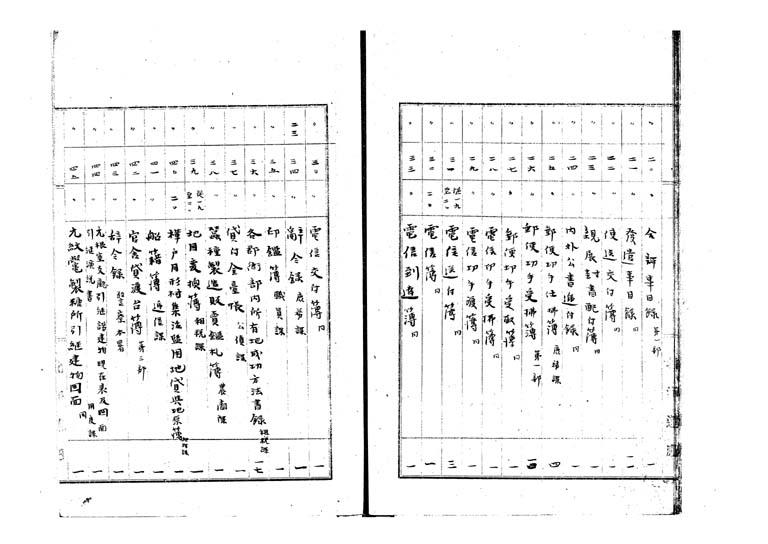 〃 二〇 〃 会計畢日録 第一部 一
〃 二一 〃 発遣畢日録 同 一
〃 二二 〃 使送交付簿 同 一
〃 二三 〃 親展封書配付簿 同 一
〃 二四 〃 内外公書逓付録 同 一
〃 二五 〃 郵便切手仕拂簿 四
〃 二六 〃 郵便切手受拂簿 第一部 一四
〃 二七 〃 郵便切手受取簿 同 一
〃 二八 〃 電信切手受拂簿 同 一
〃 二九 〃 電信切手渡簿 同 一
〃 三〇 従一九 至二〇 電信送付簿 同 三
〃 三二 二〇 電信簿 同 一
〃 三三 〃 電信到達簿 同 一
〃 三〇 〃 電信交付簿 同 一
二三 三四 〃 辞令録 庶務課 一
〃 三五 〃 印鑑簿 職員課 一
〃 三六 〃 各郡衙部内所有地成功方法書録 租税課 一七
〃 三七 〃 貸付金臺帳 公債課 一
〃 三八 〃 蚕種製造販賣鑑札簿 農商課 一
〃 三九 従一九 至二〇 地目変換簿 租税課 一
〃 四〇 二〇 樺戸月形村集治監用地貸與地系簿 一
〃 四一 〃 船籍簿 逓信課 一
〃 四二 〃 官舎貸渡台簿 第二部 一
〃 四三 〃 辞令録 警察本署 一
〃 四四 〃 元根室支廳引継諸建物現在表及図面
引継演説書 用度課 一
〃 四五 〃 元紋鼈製糖所引継建物図面 同 一